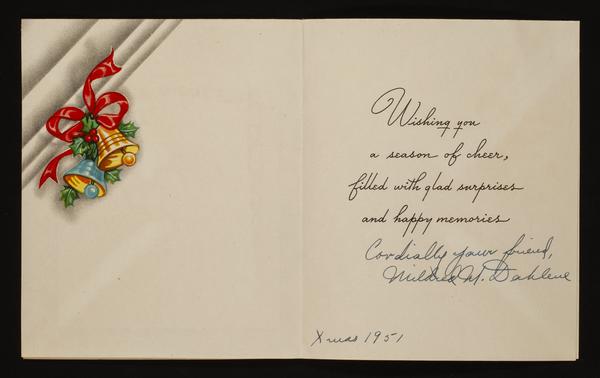 Wishing you
a season of cheer,
filled with glad surprises
and happy memories
Cordially your friend,
Mildred M. Dahlene
Xmas 1951